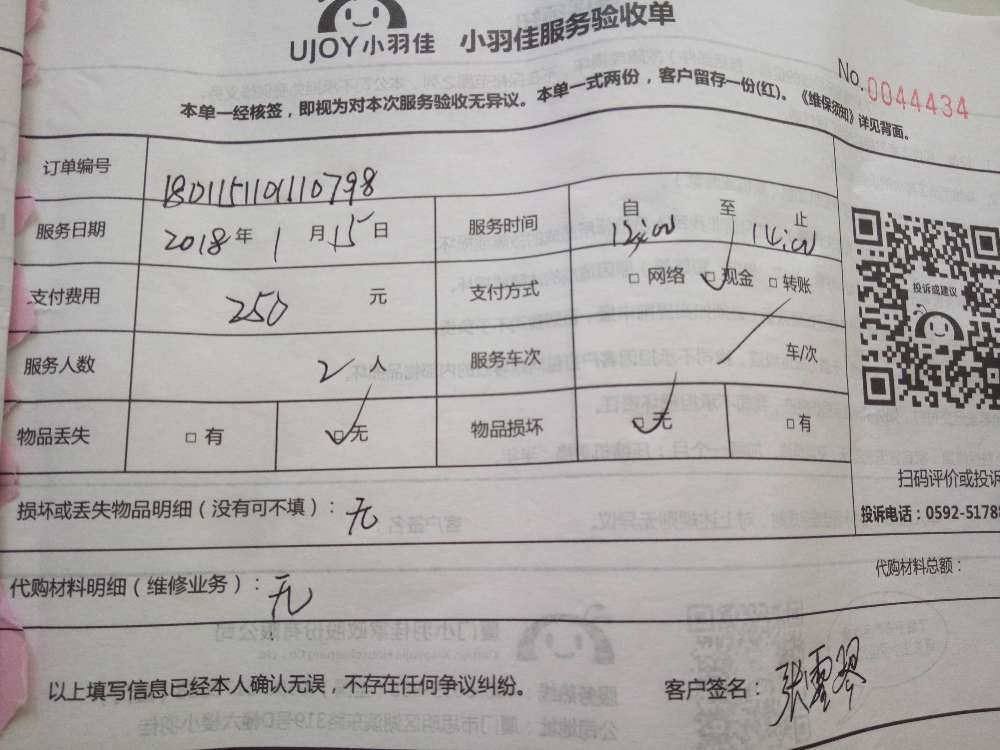 UJOY小羽佳 小羽佳服务验收单
No.0044434
本单一经核签，即视为对本次服务验收无异议。本单一式两份，客户留存一份(红)。《维保须知》详见背面。
订单编号 180115110110798
服务日期 2018年1月15日 服务时间 自 至 14:00 止
支付费用 250 元 支付方式 □网络 ☑现金 □转账
服务人数 2 人 服务车次 车/次
物品丢失 □有 ☑无 物品损坏 ☑无 □有
投诉或建议
扫码评价或投诉
投诉电话：0592-5178
损坏或丢失物品明细（没有可不填）：无
代购材料明细（维修业务）：无
代购材料总额：
以上填写信息已经本人确认无误，不存在任何争议纠纷。 客户签名：张雪琴